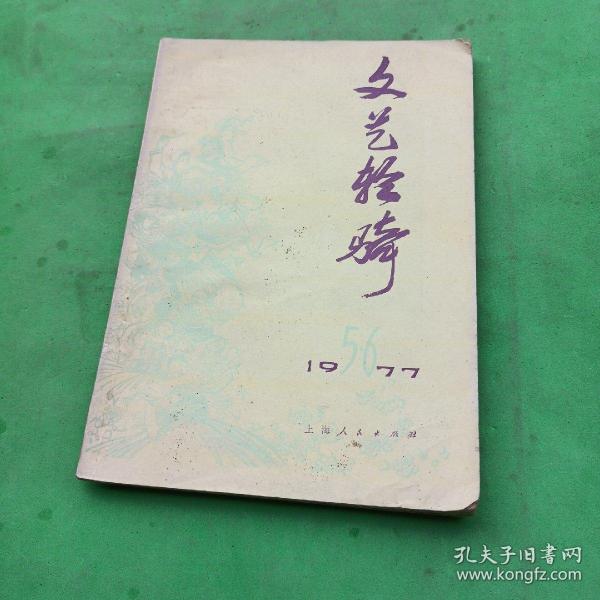 文艺轻骑
56
1977
上海人民出版社
孔夫子旧書网
www.kongfz.com